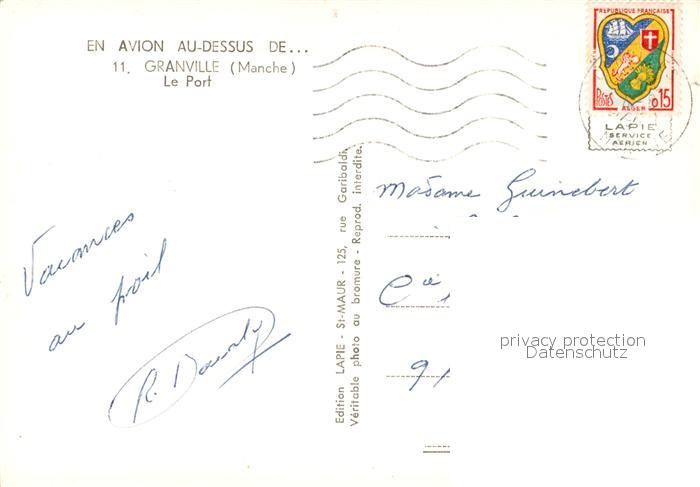 EN AVION AU-DESSUS DE...
11. GRANVILLE (Manche)
Le Port
REPUBLIQUE FRANÇAISE
POSTES
0,15
ALGER
LAPIE
SERVICE
AERIEN
Edition LAPIE - St-MAUR - 125, rue Garibaldi
Véritable photo au bromure - Reprod. interdite.
Madame Guinebert
Cie
91
Vacances
au poil
R.
privacy protection
Datenschutz